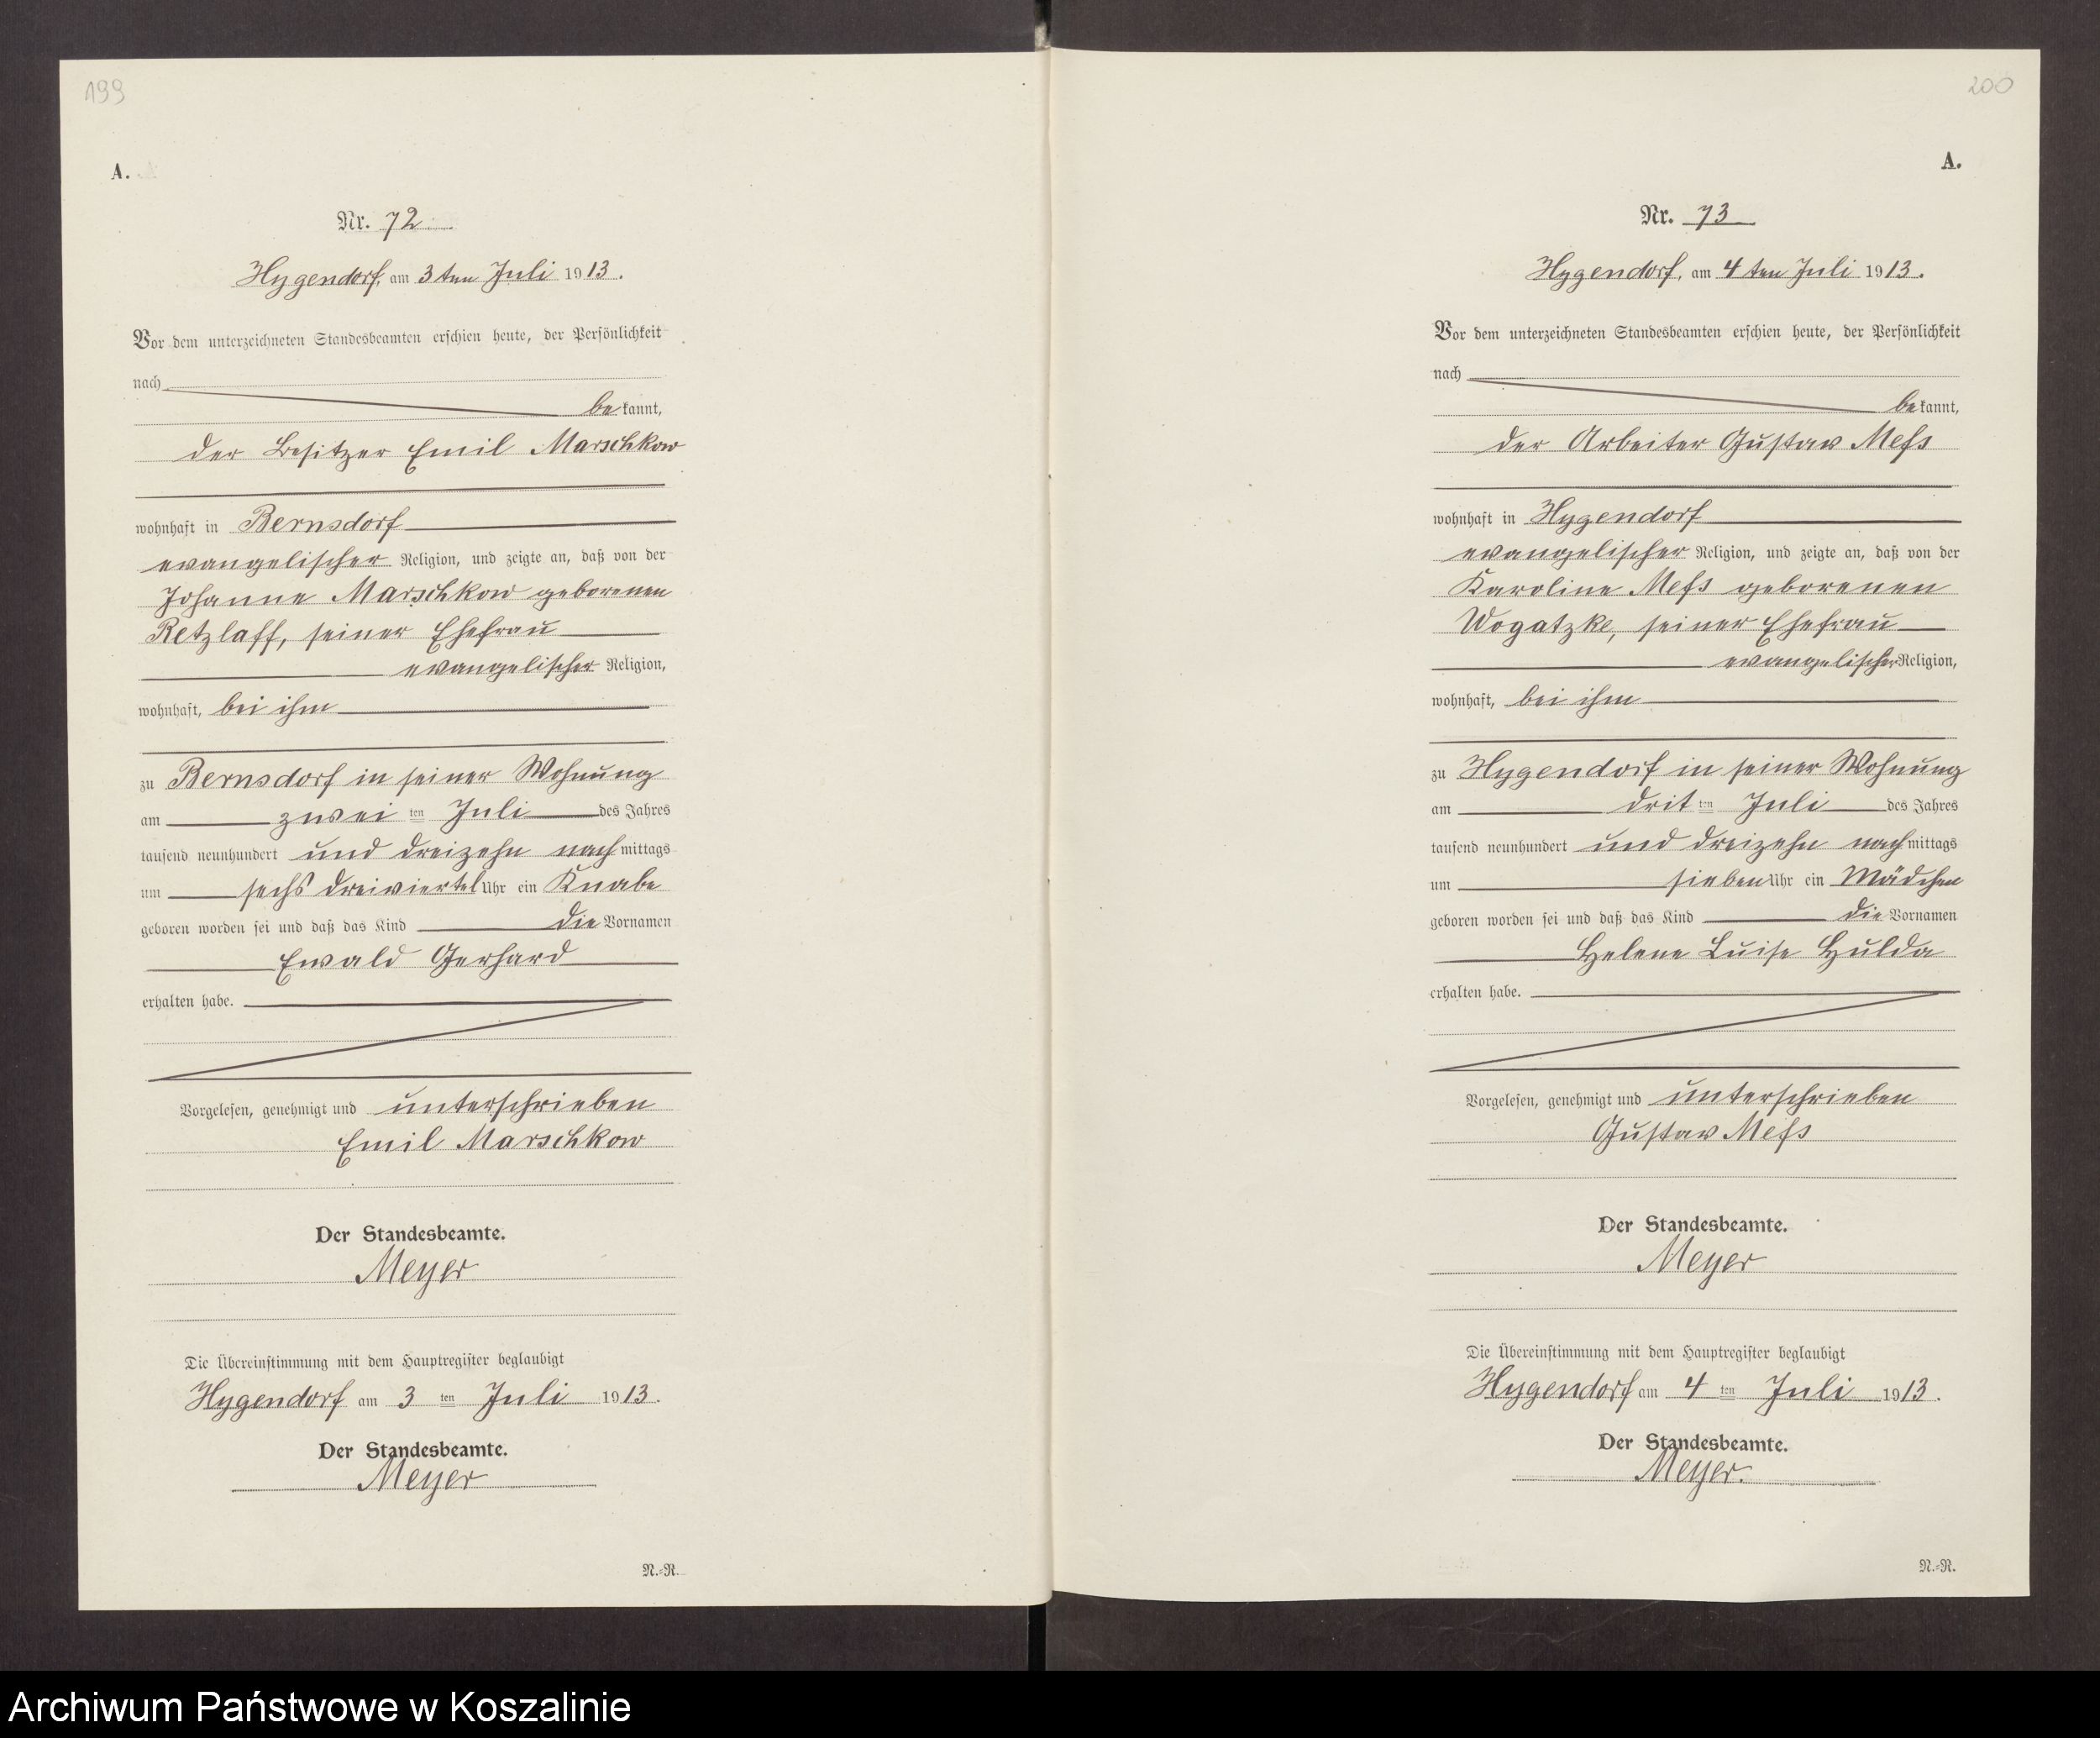 199
A.
Nr. 72
Hygendorf, am 3ten Juli 1913.
Vor dem unterzeichneten Standesbeamten erschien heute, der Persönlichkeit
nach
bekannt,
der Besitzer Emil Marschkow
wohnhaft in Bernsdorf
evangelischer Religion, und zeigte an, daß von der
Johanne Marschkow geborenen
Retzlaff, seiner Ehefrau
evangelischer Religion,
wohnhaft, bei ihm
zu Bernsdorf in seiner Wohnung
am zwei ten Juli des Jahres
tausend neunhundert und dreizehn nachmittags
um sechs dreiviertel Uhr ein Knabe
geboren worden sei und daß das Kind die Vornamen
Ewald Gerhard
erhalten habe.
Vorgelesen, genehmigt und unterschrieben
Emil Marschkow
Der Standesbeamte.
Meyer
Die Übereinstimmung mit dem Hauptregister beglaubigt
Hygendorf am 3 ten Juli 1913.
Der Standesbeamte.
Meyer
N.-R.
200
A.
Nr. 73
Hygendorf, am 4ten Juli 1913.
Vor dem unterzeichneten Standesbeamten erschien heute, der Persönlichkeit
nach
bekannt,
der Arbeiter Gustav Meß
wohnhaft in Hygendorf
evangelischer Religion, und zeigte an, daß von der
Karoline Meß geborenen
Wogatzke, seiner Ehefrau
evangelischer Religion,
wohnhaft, bei ihm
zu Hygendorf in seiner Wohnung
am drit ten Juli des Jahres
tausend neunhundert und dreizehn nachmittags
um sieben Uhr ein Mädchen
geboren worden sei und daß das Kind die Vornamen
Helene Luise Hulda
erhalten habe.
Vorgelesen, genehmigt und unterschrieben
Gustav Meß
Der Standesbeamte.
Meyer
Die Übereinstimmung mit dem Hauptregister beglaubigt
Hygendorf am 4 ten Juli 1913.
Der Standesbeamte.
Meyer.
N.-R.
Archiwum Państwowe w Koszalinie